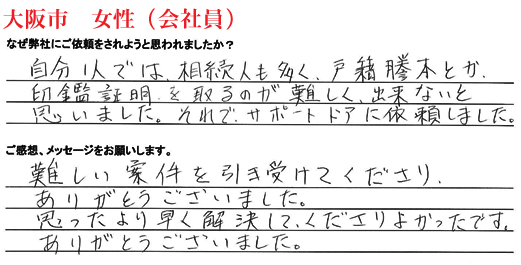 大阪市　女性（会社員）
なぜ弊社にご依頼をされようと思われましたか？
自分1人では、相続人も多く、戸籍謄本とか、
印鑑証明を取るのが難しく、出来ないと
思いました。それで、サポートドアに依頼しました。
ご感想、メッセージをお願いします。
難しい案件を引き受けてくださり、
ありがとうございました。
思ったより早く解決して、くださりよかったです。
ありがとうございました。